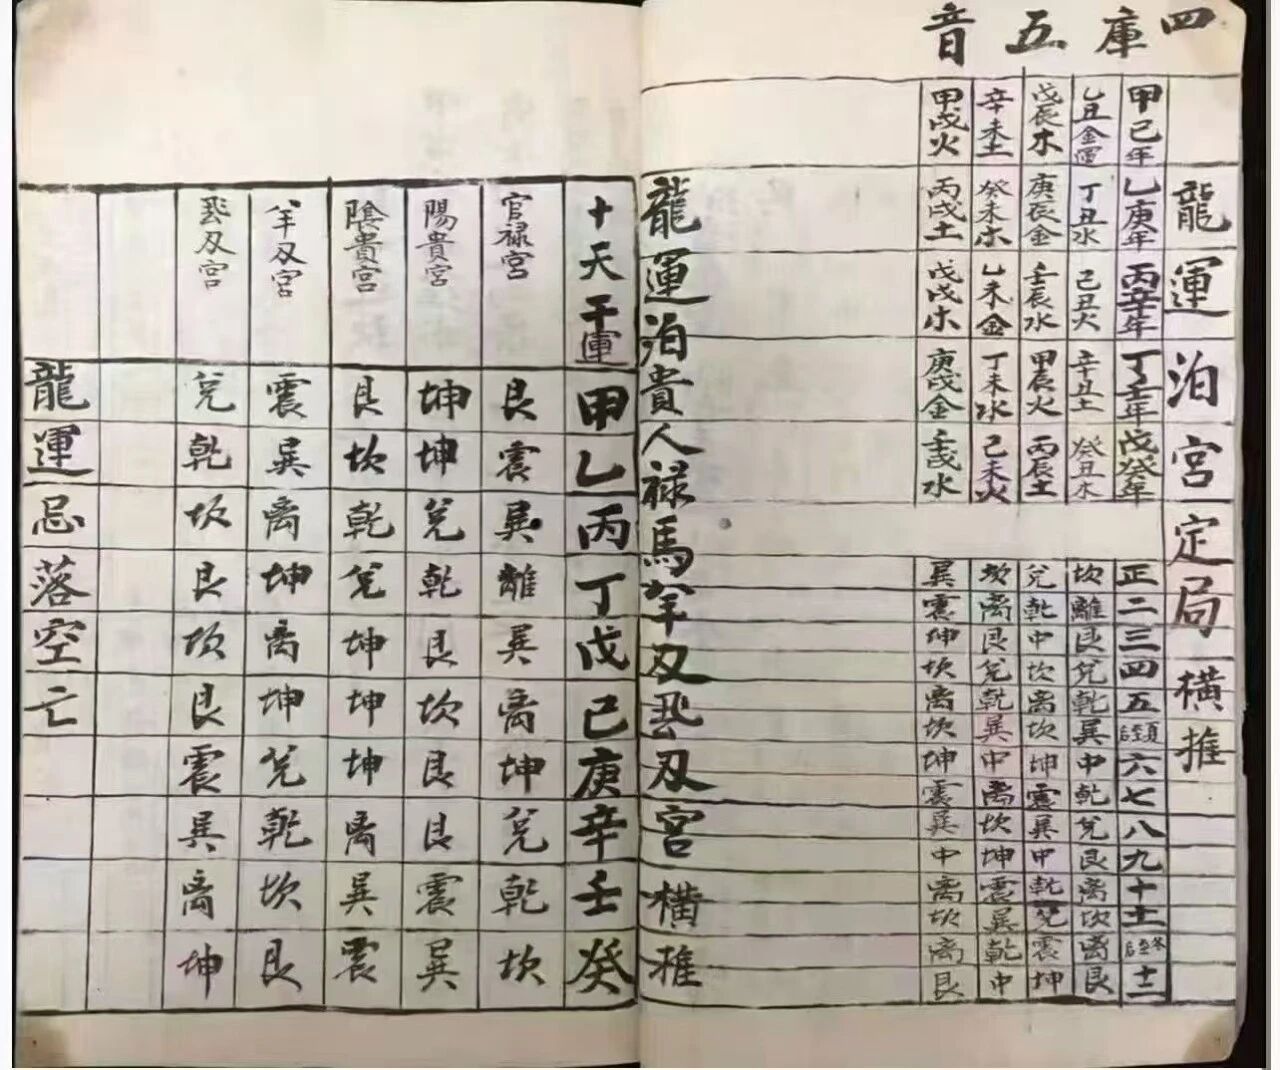 四庫五音
龍運泊宮定局橫推
甲己年 乙庚年 丙辛年 丁壬年 戊癸年
乙丑金運 丁丑水 己丑火 辛丑土 癸丑木
戊辰木 庚辰金 壬辰水 甲辰火 丙辰土
辛未土 癸未木 乙未金 丁未水 己未火
甲戌火 丙戌土 戊戌木 庚戌金 壬戌水
正 二 三 四 五 六 七 八 九 十 十一 十二
坎 離 艮 兌 乾 巽 中 乾 兌 艮 离 坎 离 艮
兌 乾 中 坎 离 坎 坤 震 巽 中 乾 兌 震 坤
坎 离 艮 兌 乾 巽 中 离 坎 坤 震 巽 乾 中
巽 震 坤 坎 离 坎 坤 震 巽 中 离 坎 离 艮
龍運泊貴人祿馬羊刃飛刃宮橫推
十天干運 甲 乙 丙 丁 戊 己 庚 辛 壬 癸
官祿宮 艮 震 巽 離 巽 离 坤 兌 乾 坎
陽貴宮 坤 坤 兌 乾 艮 坎 艮 艮 震 巽
陰貴宮 艮 坎 乾 兌 坤 坤 坤 离 巽 震
羊刃宮 震 巽 离 坤 离 坤 兌 乾 坎 艮
飛刃宮 兌 乾 坎 艮 坎 艮 震 巽 离 坤
龍運忌落空亡